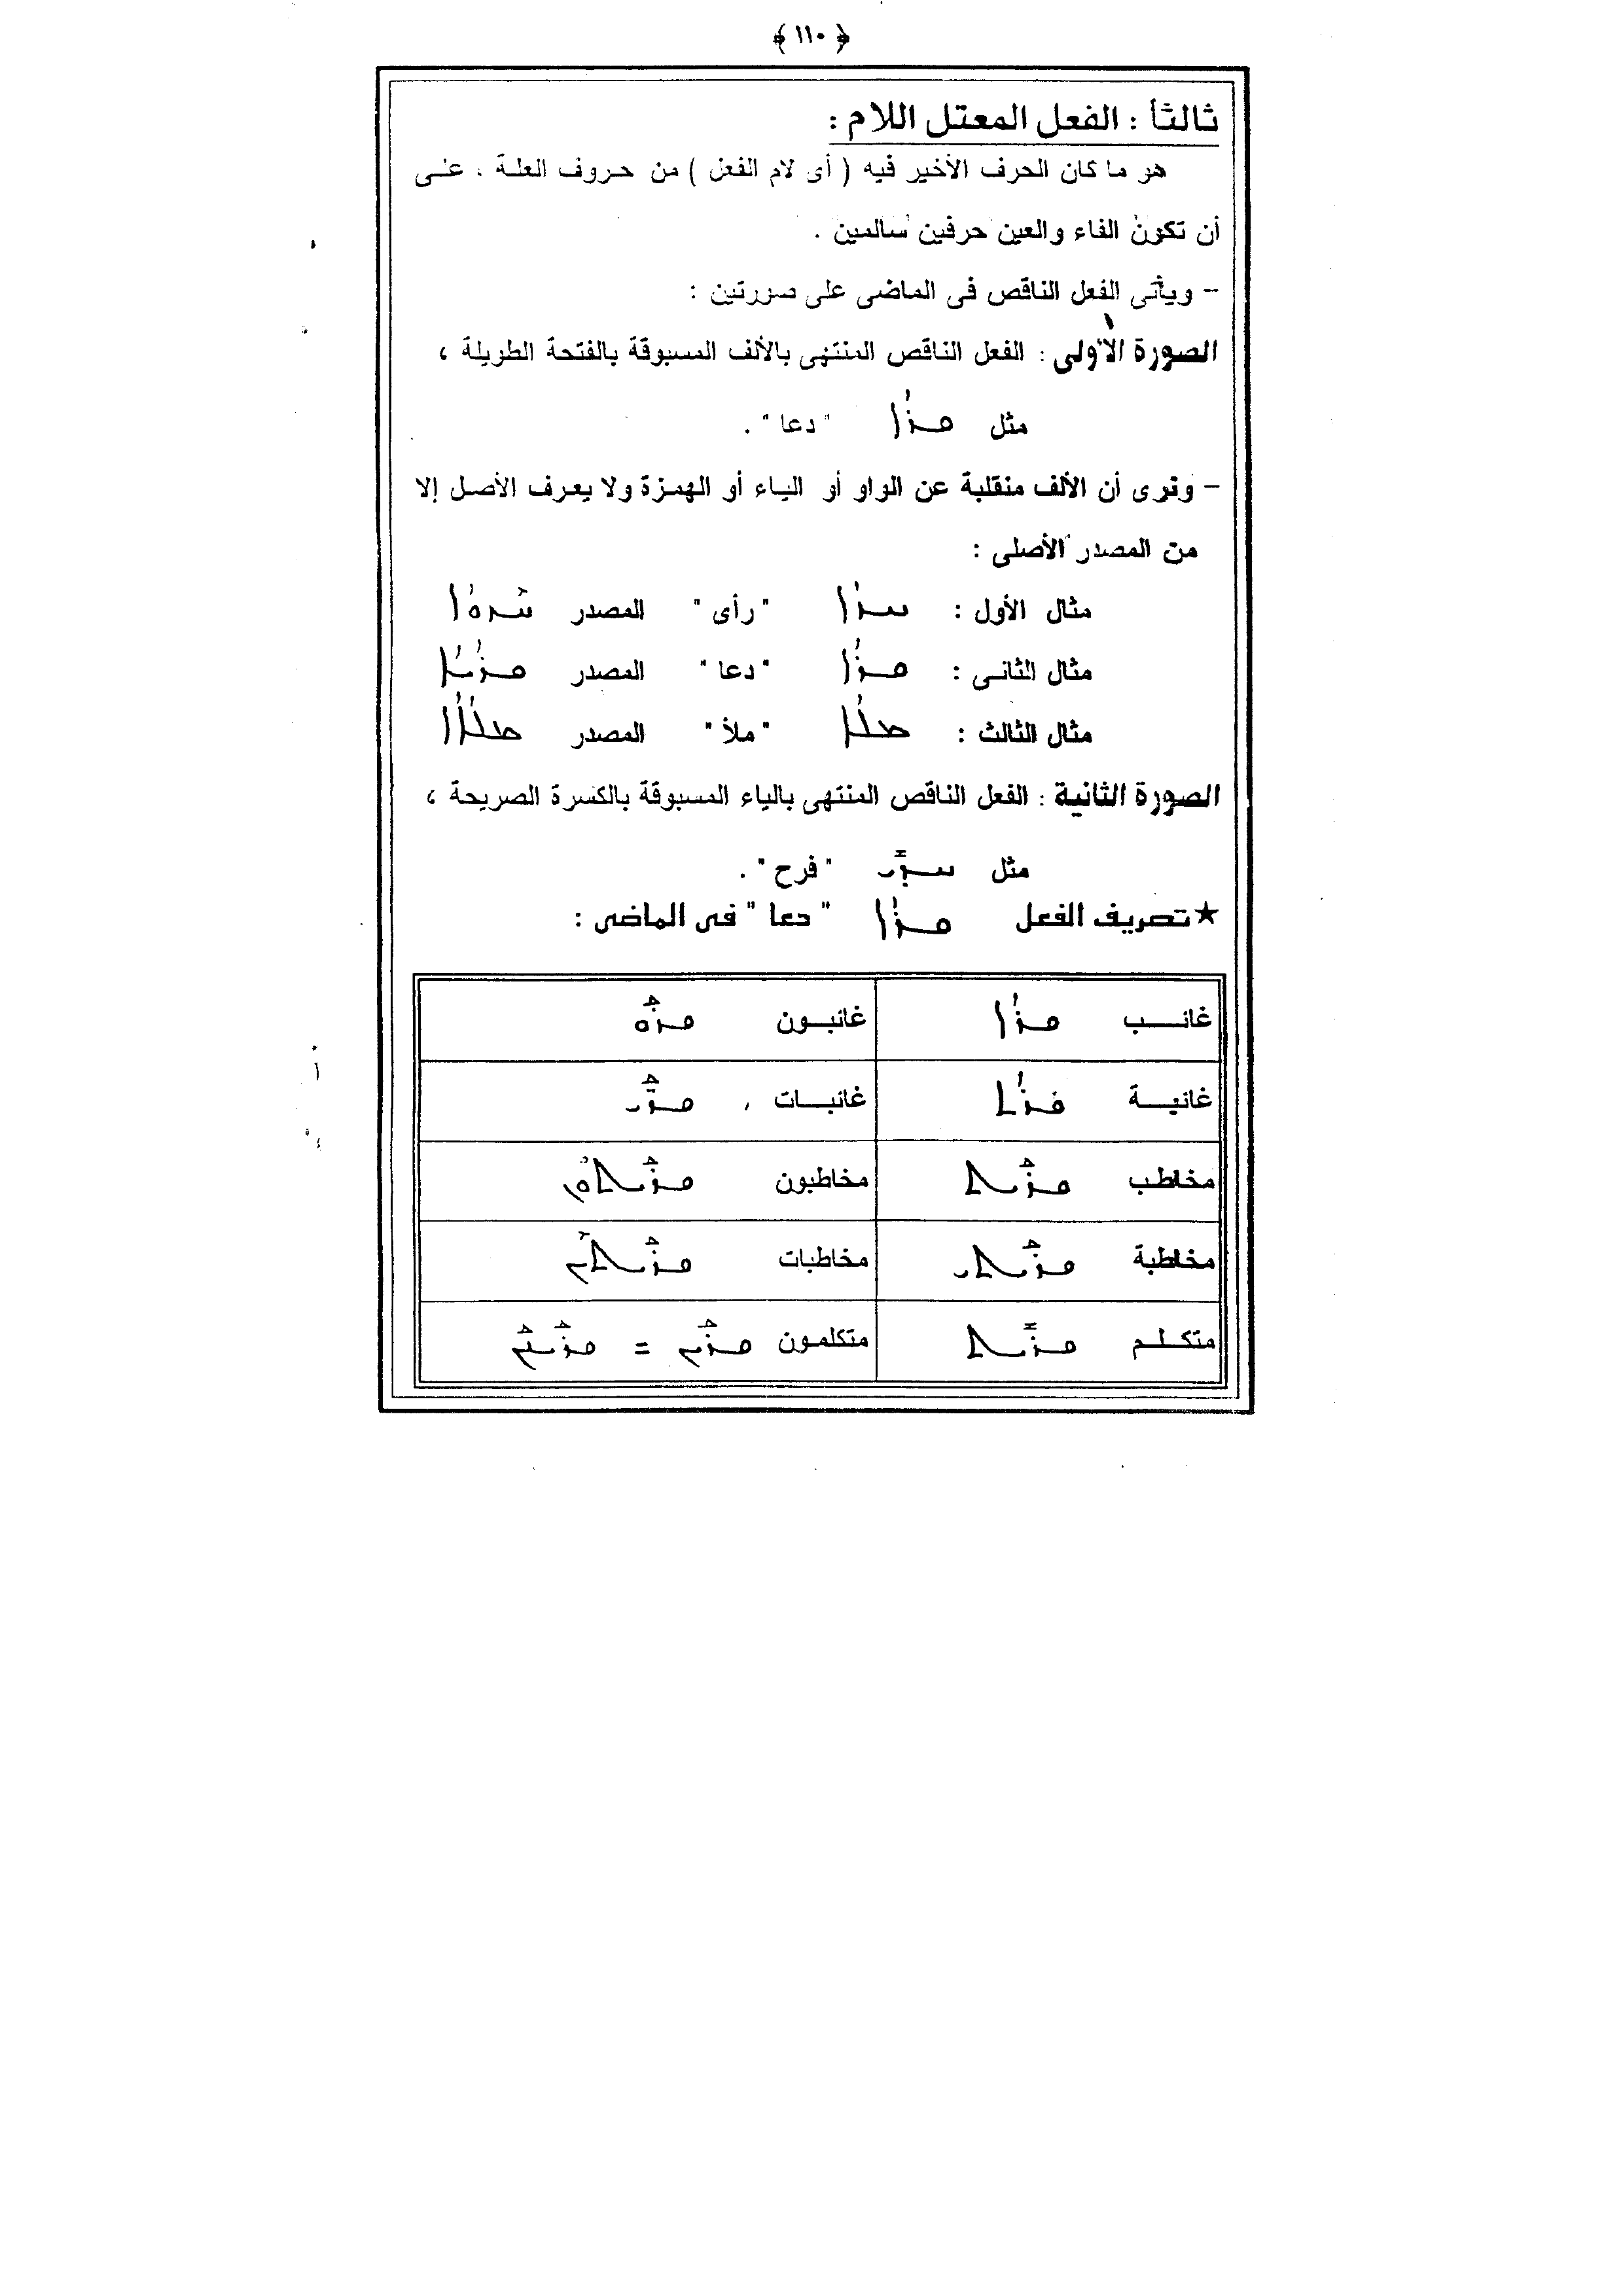 ﴿ ١١٠ ﴾
ثالثاً : الفعل المعتل اللام :
هو ما كان الحرف الأخير فيه ( أى لام الفعل ) من حروف العلة ، على
أن تكون الفاء والعين حرفين سالمين .
- ويأتى الفعل الناقص فى الماضى على صورتين :
الصورة الأولى : الفعل الناقص المنتهى بالألف المسبوقة بالفتحة الطويلة ،
مثل ܩܪܳܐ " دعا " .
- وترى أن الألف منقلبة عن الواو أو الياء أو الهمزة ولا يعرف الأصل إلا
من المصدر الأصلى :
مثال الأول : ܚܙܳܐ " رأى " المصدر
مثال الثانى : ܩܪܳܐ " دعا " المصدر ܩܪܳܝܳܐ
مثال الثالث : ܡܠܳܐ " ملأ " المصدر ܡܠܳܐܳܐ
الصورة الثانية : الفعل الناقص المنتهى بالياء المسبوقة بالكسرة الصريحة ،
مثل ܚܕܺܝ " فرح " .
★ تصريف الفعل ܩܪܳܐ " دعا " فى الماضى :
غائب ܩܪܳܐ غائبون ܩܪܰܘ
غائبة ܩܪܳܬ غائبات ، ܩܪܰܝ̈
مخاطب ܩܪܰܝܬ مخاطبون ܩܪܰܝܬܽܘܢ
مخاطبة ܩܪܰܝܬܝ مخاطبات ܩܪܰܝܬܶܝܢ
متكلم ܩܪܺܝܬ متكلمون ܩܪܰܝܢ = ܩܪܰܝܢܰܢ